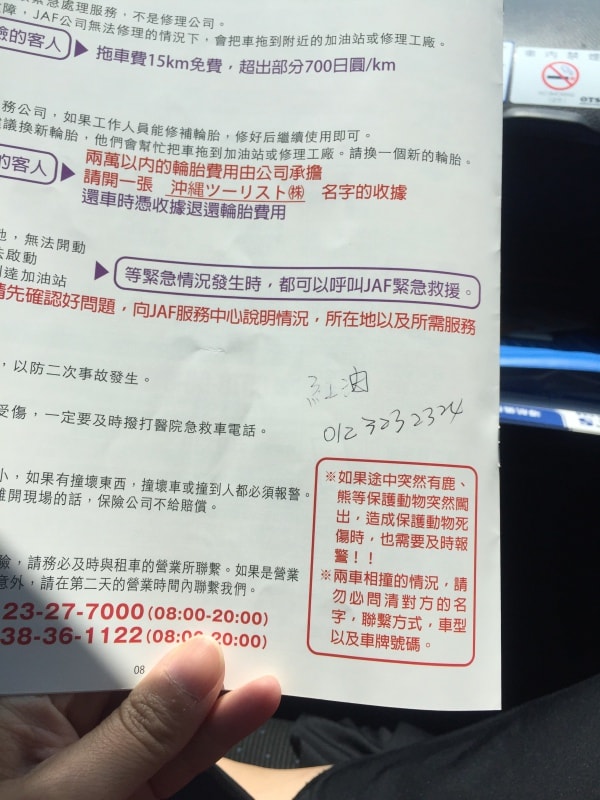 緊急處理服務，不是修理公司。
故障，JAF公司無法修理的情況下，會把車拖到附近的加油站或修理工廠。
險的客人
拖車費15km免費，超出部分700日圓/km
務公司，如果工作人員能修補輪胎，修好后繼續使用即可。
建議換新輪胎，他們會幫忙把車拖到加油站或修理工廠。請換一個新的輪胎。
的客人
兩萬以內的輪胎費用由公司承擔
請開一張 沖縄ツーリスト㈱ 名字的收據
還車時憑收據退還輪胎費用
地，無法開動
法啟動
到達加油站
等緊急情況發生時，都可以呼叫JAF緊急救援。
請先確認好問題，向JAF服務中心說明情況，所在地以及所需服務
，以防二次事故發生。
紅油
受傷，一定要及時撥打醫院急救車電話。
012 3232324
小，如果有撞壞東西，撞壞車或撞到人都必須報警。
離開現場的話，保險公司不給賠償。
險，請務必及時與租車的營業所聯繫。如果是營業
意外，請在第二天的營業時間內聯繫我們。
23-27-7000 (08:00-20:00)
38-36-1122 (08:00-20:00)
※如果途中突然有鹿、
熊等保護動物突然闖
出，造成保護動物死
傷時，也需要及時報
警！！
※兩車相撞的情況，請
勿必問清對方的名
字，聯繫方式，車型
以及車牌號碼。
08
車內禁煙
OTS